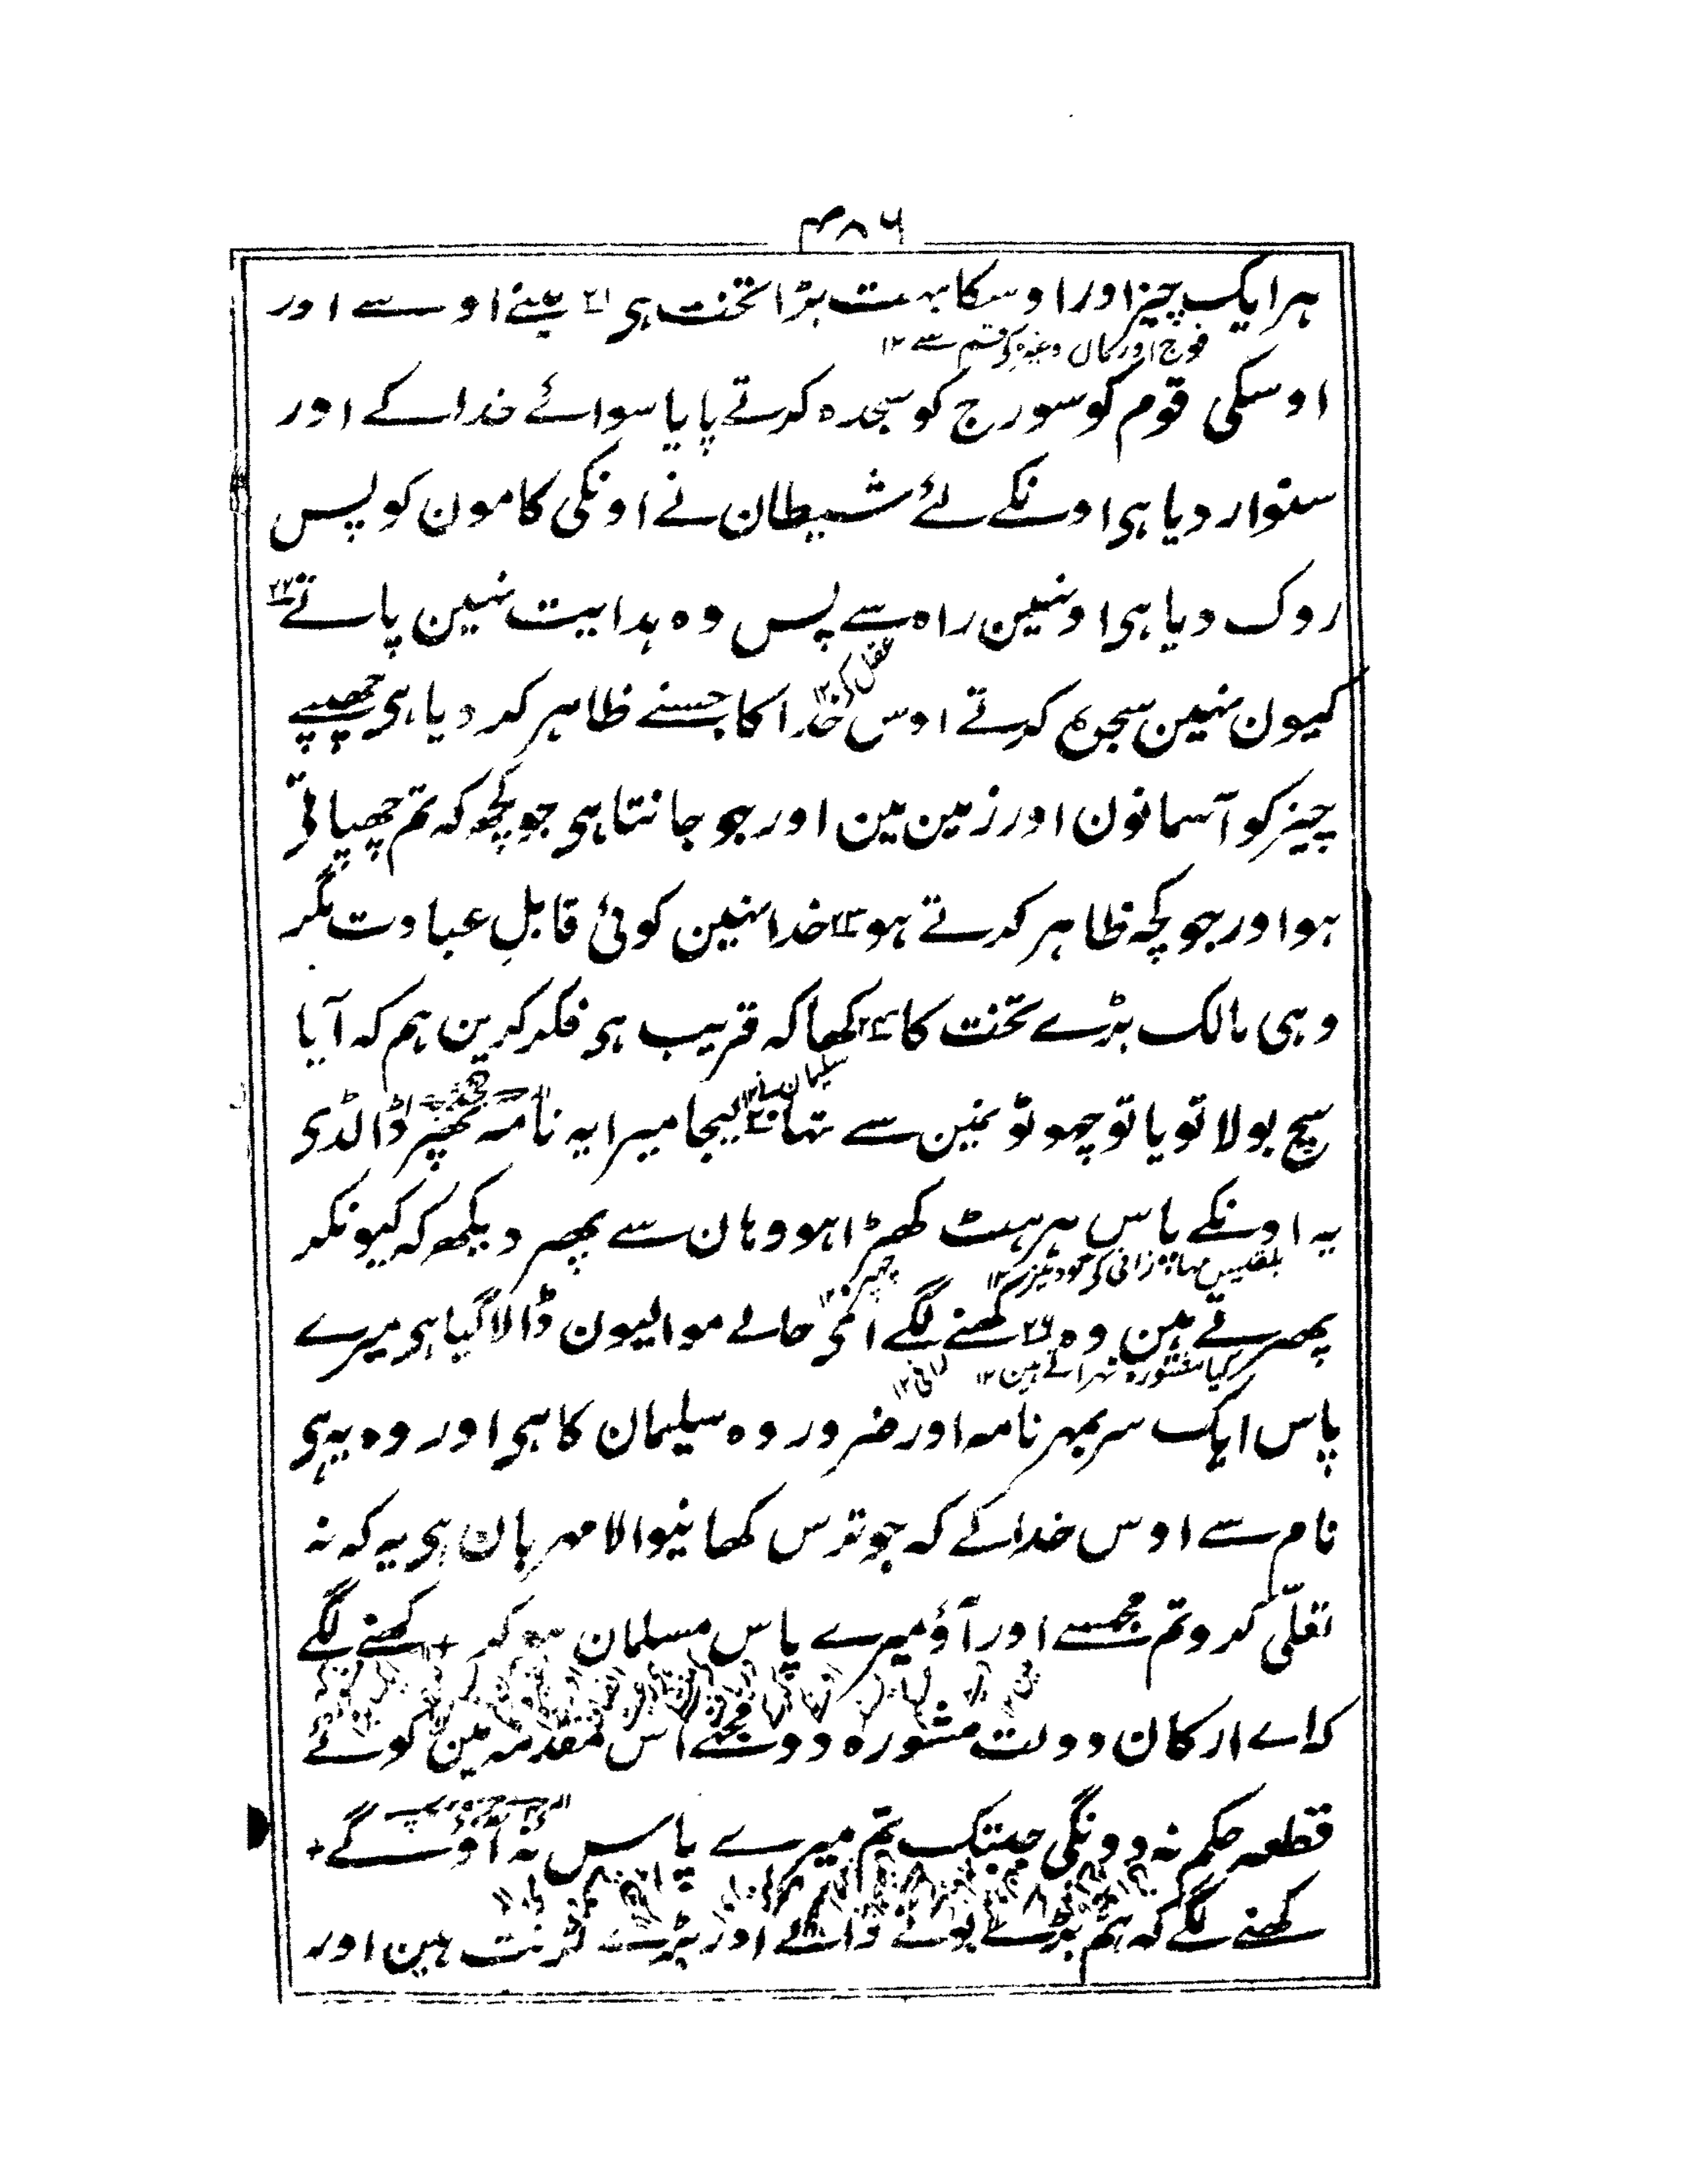 ۴۸۶
ہر ایک چیز اور اوسکا بہت بڑا تخت ہی ۲۱ مینے اوسے اور
فوج اور مال وغیرہ کی قسم سے ۱۲
اوسکی قوم کو سورج کو سجدہ کرتے پایا سوائے خدا کے اور
سنوار دیا ہی اونکے لئے شیطان نے اونکی کامون کو پس
روک دیا ہی اونہین راہ سے پس وہ ہدایت نہین پاتے ۲۲
کیون نہین سجدہ کرتے اوس خدا کا جسنے ظاہر کر دیا ہی چھپے
چیز کو آسمانون اور زمین مین اور جو جانتا ہی جو کچھ کہ تم چھپاتی
ہو اور جو کچہ ظاہر کرتے ہو ۲۳ خدا نہین کوئی قابلِ عبادت مگر
وہی مالک بڑے تخت کا ۲۴ کھا کہ قریب ہی فکر کرین ہم کہ آیا
سلیمان نے
سچ بولا تو یا تو جہوٹونمین سے تہا ۲۵ لیجا میرا یہ نامہ پھر ڈالدی
یہ اونکے پاس پھر ہٹ کھڑا ہو وہان سے پھر دیکھ کہ کیونکر
بلقیس مہا رانی کی گود
پھرتے ہین وہ ۲۶ کھنے لگے اجی حالے موالیون ڈالا گیا ہی میرے
کیا مشورہ ٹہراتے ہین ۱۲
پاس ایک سربمہر نامہ اور ضرور وہ سلیمان کا ہی اور وہ یہ ہی
نام سے اوس خدا کے کہ جو ترس کھانیوالا مہربان ہی یہ کہ نہ
تعلّی کرو تم مجھسے اور آؤ میرے پاس مسلمان ہو کر + کھنے لگے
کہ اے ارکان دولت مشورہ دو مجھے اس مقدمہ مین کوئے
قطعہ حکم نہ دونگی جبتک تم میرے پاس نہ آوگے +
کھنے لگے کہ ہم بڑے بوتے والے اور بڑے لڑنت ہین اور